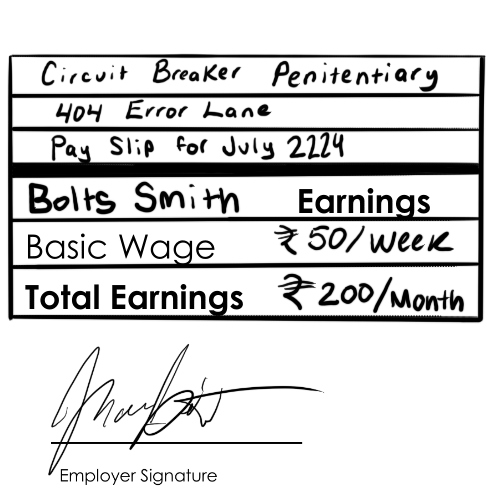 Circuit Breaker Penitentiary
404 Error Lane
Pay Slip for July 2224
Bolts Smith Earnings
Basic Wage ₹50/week
Total Earnings ₹200/Month
Employer Signature